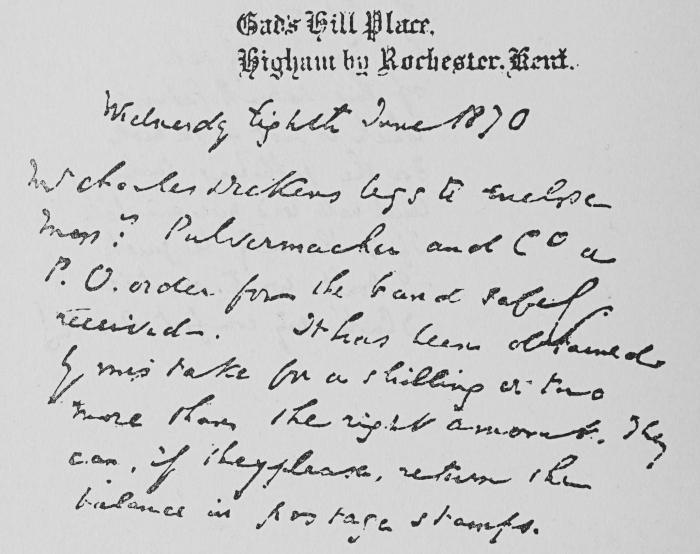 Gad's Hill Place,
Higham by Rochester, Kent.
Wednesday Eighth June 1870
Mr Charles Dickens begs to enclose
Messrs Pulvermacher and Co a
P. O. order for the band safely
received. It has been obtained
by mistake for a shilling or two
more than the right amount. They
can, if they please, return the
balance in postage stamps.